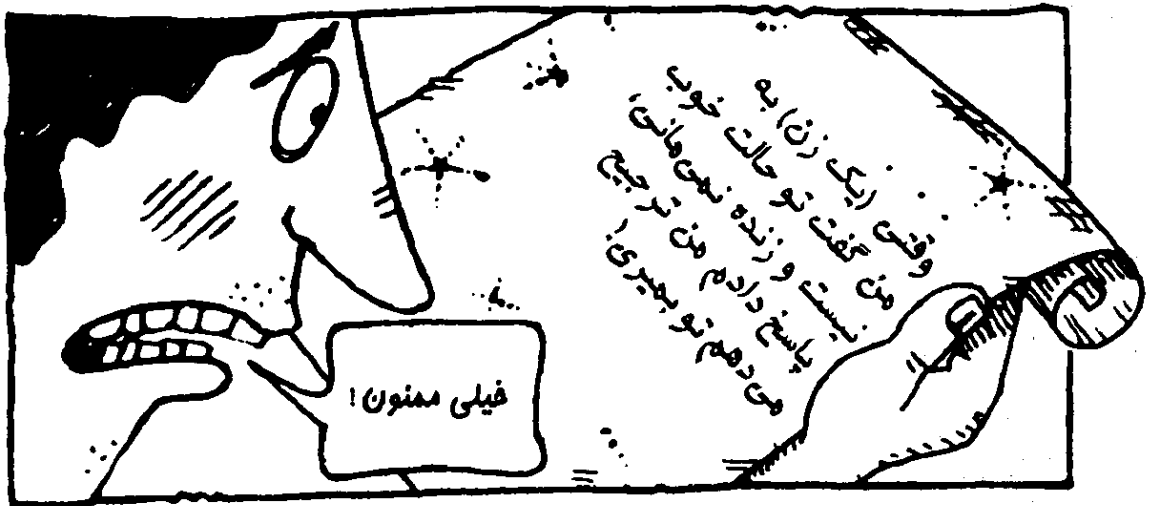 وقتی (یک زن) به
من گفت تو حالت خوب
نیست و زنده نمی‌مانی،
پاسخ دادم من ترجیح
می‌دهم تو بمیری!
خیلی ممنون!